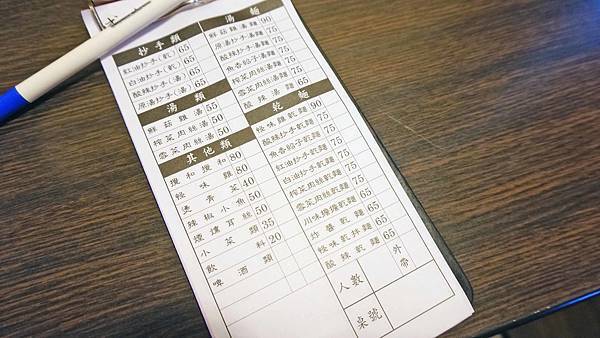 抄手類
紅油抄手(乾) 65
白油抄手(乾) 65
酸辣抄手(湯) 65
原湯抄手(湯) 65
湯類
鮮菇雞湯 55
榨菜肉絲湯 50
雪菜肉絲湯 50
其他類
攪和攪和 80
怪味雞 80
燙青菜 40
辣椒小魚 50
煙燻耳絲 50
小菜類 35
飲料 20
啤酒類
湯麵
鮮菇雞湯麵 90
原湯抄手湯麵 75
酸辣抄手湯麵 75
魚香餃子湯麵 75
榨菜肉絲湯麵 75
雪菜肉絲湯麵 75
酸辣湯麵 65
乾麵
怪味雞乾麵 90
酸辣抄手乾麵 75
魚香餃子乾麵 75
紅油抄手乾麵 75
白油抄手乾麵 75
榨菜肉絲乾麵 75
雪菜肉絲乾麵 75
川味擔擔乾麵 65
炸醬乾麵 65
怪味乾拌麵 65
酸辣乾麵 65
人數
外帶
桌號